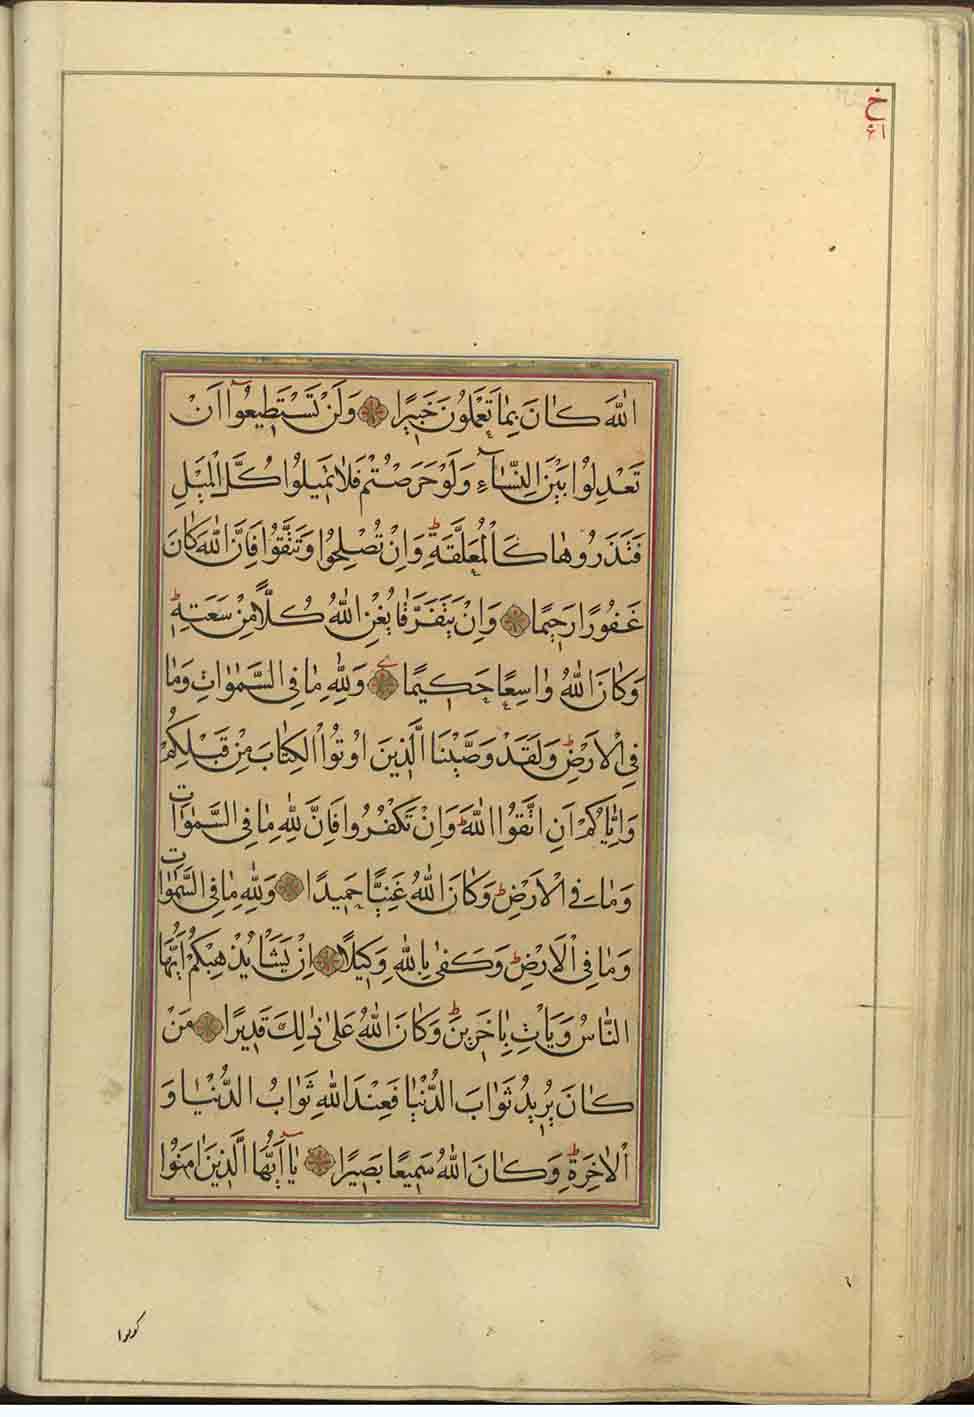 خ
٦١
اللّٰهَ كَانَ بِمَا تَعْمَلُونَ خَبِيرًا وَلَنْ تَسْتَطِيعُوٓا اَنْ
تَعْدِلُوا بَيْنَ النِّسَآءِ وَلَوْ حَرَصْتُمْ فَلَا تَمِيلُوا كُلَّ الْمَيْلِ
فَتَذَرُوهَا كَالْمُعَلَّقَةِ ط وَاِنْ تُصْلِحُوا وَتَتَّقُوا فَاِنَّ اللّٰهَ كَانَ
غَفُورًا رَحِيمًا وَاِنْ يَتَفَرَّقَا يُغْنِ اللّٰهُ كُلًّا مِنْ سَعَتِهِ ط
وَكَانَ اللّٰهُ وَاسِعًا حَكِيمًا وَلِلّٰهِ مَا فِي السَّمٰوَاتِ وَمَا
فِي الْاَرْضِ ط وَلَقَدْ وَصَّيْنَا الَّذِينَ اُوتُوا الْكِتَابَ مِنْ قَبْلِكُمْ
وَاِيَّاكُمْ اَنِ اتَّقُوا اللّٰهَ ط وَاِنْ تَكْفُرُوا فَاِنَّ لِلّٰهِ مَا فِي السَّمٰوَاتِ
وَمَا فِي الْاَرْضِ ط وَكَانَ اللّٰهُ غَنِيًّا حَمِيدًا وَلِلّٰهِ مَا فِي السَّمٰوَاتِ
وَمَا فِي الْاَرْضِ ط وَكَفٰى بِاللّٰهِ وَكِيلًا اِنْ يَشَأْ يُذْهِبْكُمْ اَيُّهَا
النَّاسُ وَيَأْتِ بِاٰخَرِينَ ط وَكَانَ اللّٰهُ عَلٰى ذٰلِكَ قَدِيرًا مَنْ
كَانَ يُرِيدُ ثَوَابَ الدُّنْيَا فَعِنْدَ اللّٰهِ ثَوَابُ الدُّنْيَا وَ
الْاٰخِرَةِ ط وَكَانَ اللّٰهُ سَمِيعًا بَصِيرًا يَآ اَيُّهَا الَّذِينَ اٰمَنُوا
كونوا